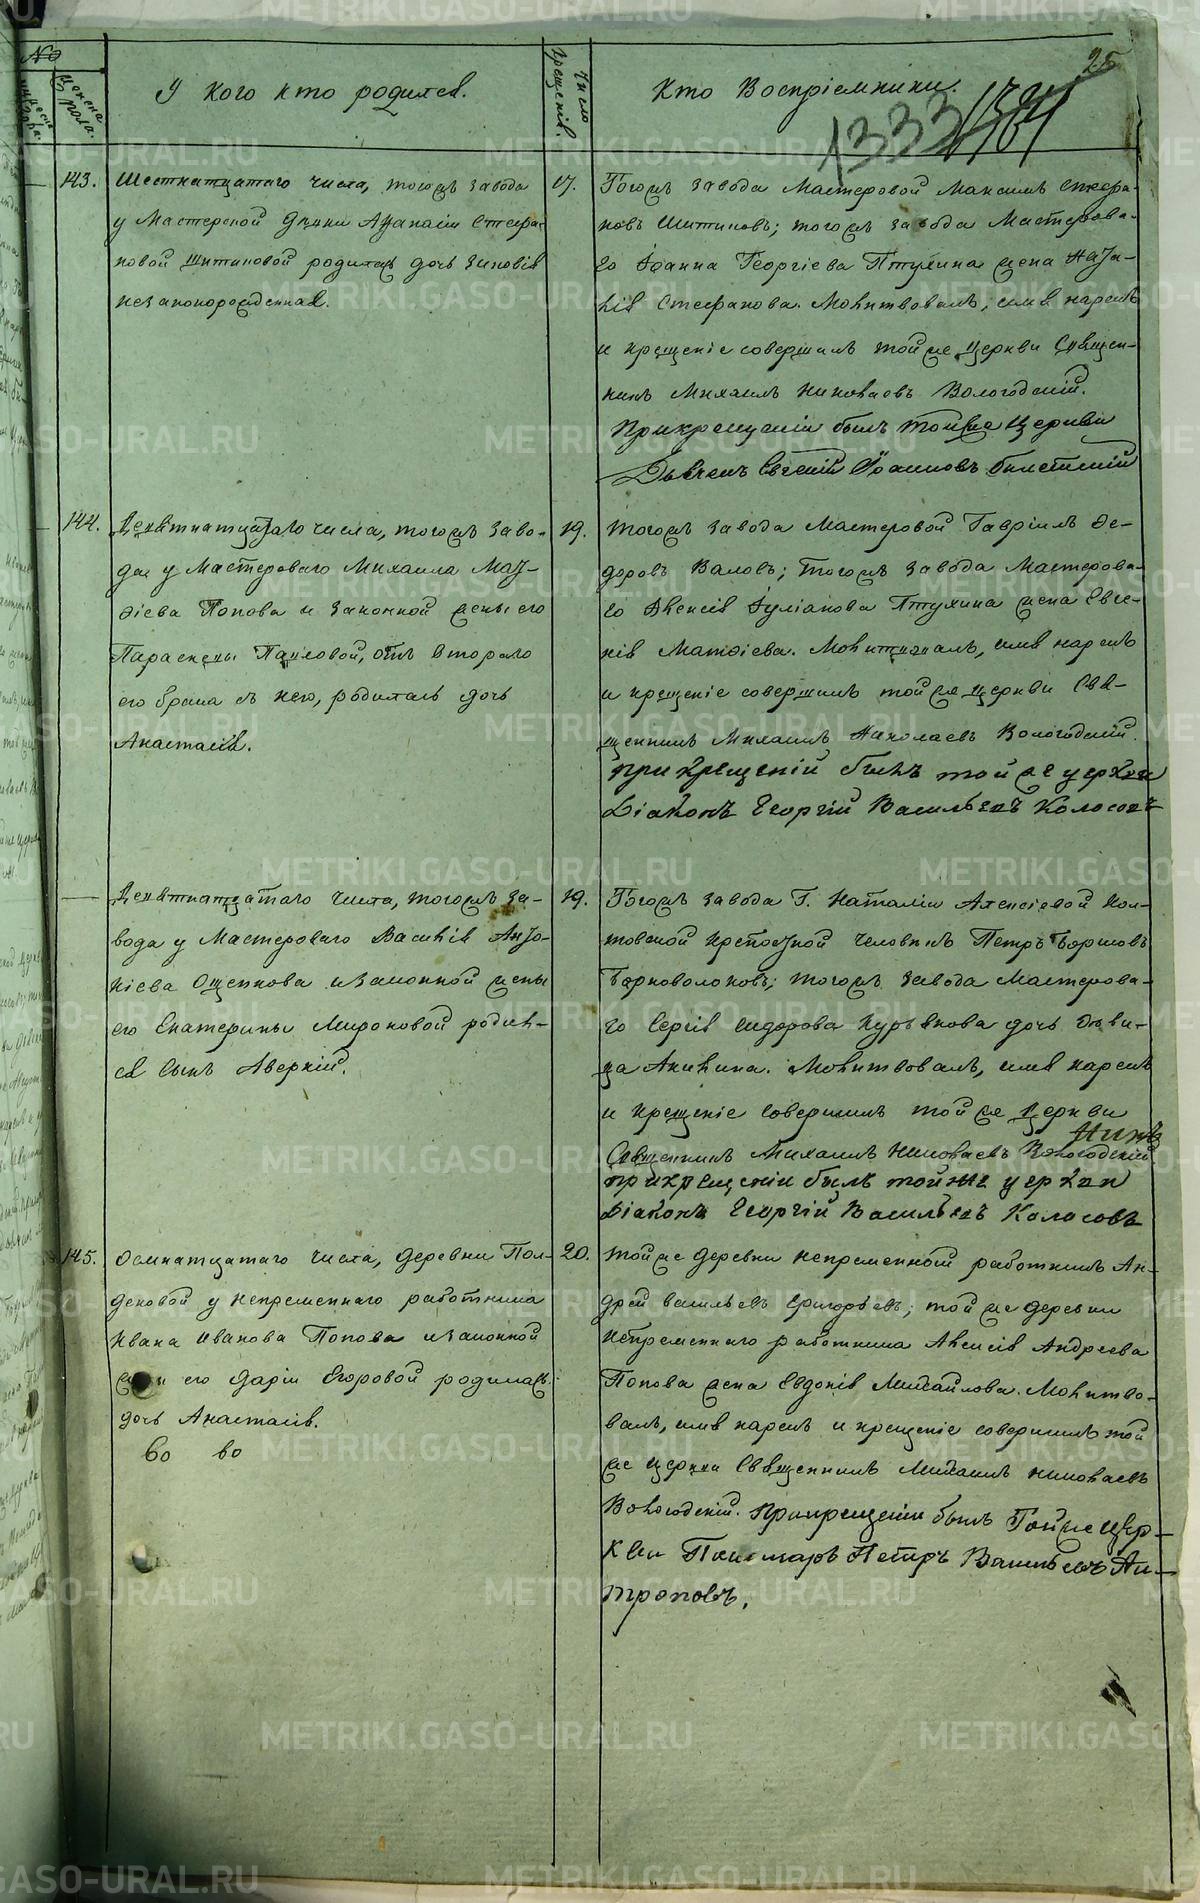 25
№
У кого кто родился.
Число крещенія.
Кто Воспріемники.
женска пола.
1333
143.
Шестнатцатаго числа, тогожъ завода
у Мастерской Дѣвки Афанасіи Стефа-
новой Шитиковой родилась дочь Зиновія
незаконорожденная.
17.
Тогожъ завода Мастеровой Максимъ Стефа-
новъ Шитиковъ; тогожъ завода Мастерова-
го Іоанна Георгіева Птухина жена
Стефанова. Молитвовалъ, имя нарекъ
и крещеніе совершилъ тойже церкви Священ-
никъ Михаилъ Николаевъ Вологодскій.
При крещеніи былъ тойже Церкви
Дьячекъ Евгеній Іоанновъ
144.
Девятнатцатаго числа, тогожъ заво-
да у Мастероваго Михаила Мат-
ѳіева Попова и законной жены его
Параскевы Павловой, отъ втораго
его брака съ нею, родилась дочь
Анастасія.
19.
Тогожъ завода Мастеровой Гавріилъ Ѳе-
доровъ Валовъ; тогожъ завода Мастерова-
го Алексія Іуліанова Птухина жена Евге-
нія Матѳіева. Молитвовалъ, имя нарекъ
и крещеніе совершилъ тойже церкви Свя-
щенникъ Михаилъ Николаевъ Вологодскій.
при крещеній былъ тойже церкви
Діаконъ Георгій Васильевъ Колосовъ
Девятнатцатаго числа, тогожъ за-
вода у Мастероваго Василія Анто-
ніева Ощепкова и законной жены
его Екатерины Мироновой родил-
ся сынъ Аверкій.
19.
Тогожъ завода Г. Наталіи Алексіевой Кол-
товской крепостной человѣкъ Петръ
Тарноволоковъ; тогожъ завода Мастерова-
го Сергія Сидорова Курьякова дочь дѣви-
ца Акилина. Молитвовалъ, имя нарекъ
и крещеніе совершилъ тойже церкви
Священникъ Михаилъ Николаевъ Вологодскій
при крещеніи былъ тойже церкви
Діаконъ Георгій Васильевъ Колосовъ
145.
Осмнатцатаго числа, деревни Пол-
деновой у непременнаго работника
Ивана Иванова Попова и законной
жены его Даріи Егоровой родилась
дочь Анастасія.
во во
20.
Тойже деревни непременной работникъ Ан-
дрей Васильевъ Григорьевъ; тойже деревни
непременнаго работника Алексія Андреева
Попова жена Евдокія Михайлова. Молитво-
валъ, имя нарекъ и крещеніе совершилъ той
же церкви Священникъ Михаилъ Николаевъ
Вологодскій. При крещеніи былъ Тойже Цер-
кви Пономарь Петръ Васильевъ Ан-
троповъ.
METRIKI.GASO-URAL.RU